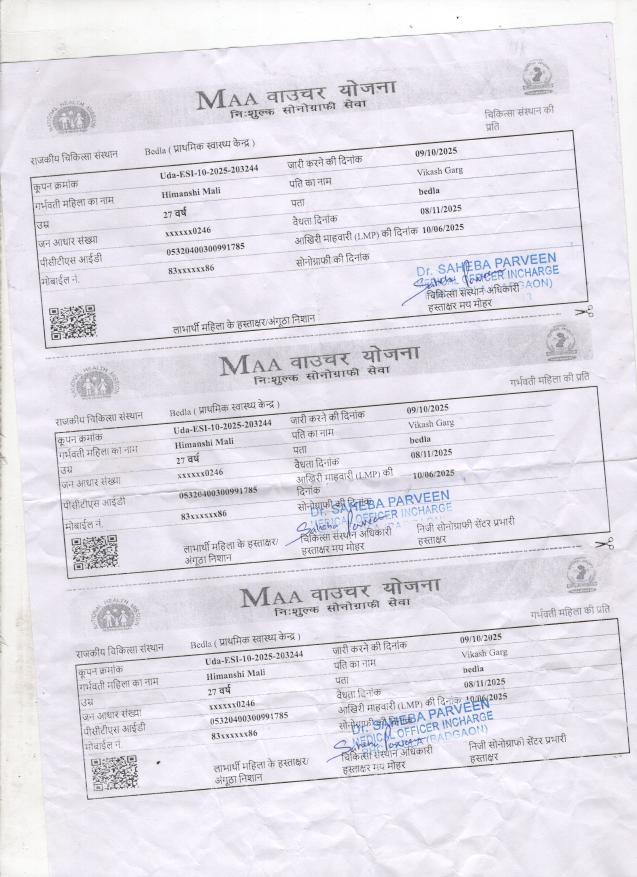 MAA वाउचर योजना
निःशुल्क सोनोग्राफी सेवा
चिकित्सा संस्थान की
प्रति
राजकीय चिकित्सा संस्थान Bedla ( प्राथमिक स्वास्थ्य केन्द्र )
कूपन क्रमांक Uda-ESI-10-2025-203244 जारी करने की दिनांक 09/10/2025
गर्भवती महिला का नाम Himanshi Mali पति का नाम Vikash Garg
उम्र 27 वर्ष पता bedla
जन आधार संख्या xxxxxx0246 वैधता दिनांक 08/11/2025
पीसीटीएस आईडी 05320400300991785 आखिरी माहवारी (LMP) की दिनांक 10/06/2025
मोबाईल नं. 83xxxxxx86 सोनोग्राफी की दिनांक
Dr. SAHEBA PARVEEN
OFFICER INCHARGE
चिकित्सा संस्थान अधिकारी
लाभार्थी महिला के हस्ताक्षर/अंगूठा निशान हस्ताक्षर मय मोहर
MAA वाउचर योजना
निःशुल्क सोनोग्राफी सेवा
गर्भवती महिला की प्रति
राजकीय चिकित्सा संस्थान Bedla ( प्राथमिक स्वास्थ्य केन्द्र )
कूपन क्रमांक Uda-ESI-10-2025-203244 जारी करने की दिनांक 09/10/2025
गर्भवती महिला का नाम Himanshi Mali पति का नाम Vikash Garg
उम्र 27 वर्ष पता bedla
जन आधार संख्या xxxxxx0246 वैधता दिनांक 08/11/2025
पीसीटीएस आईडी 05320400300991785 आखिरी माहवारी (LMP) की 10/06/2025
दिनांक
मोबाईल नं. 83xxxxxx86 सोनोग्राफी की दिनांक
Dr. SAHEBA PARVEEN
MEDICAL OFFICER INCHARGE
लाभार्थी महिला के हस्ताक्षर/ चिकित्सा संस्थान अधिकारी निजी सोनोग्राफी सेंटर प्रभारी
अंगूठा निशान हस्ताक्षर मय मोहर हस्ताक्षर
MAA वाउचर योजना
निःशुल्क सोनोग्राफी सेवा
गर्भवती महिला की प्रति
राजकीय चिकित्सा संस्थान Bedla ( प्राथमिक स्वास्थ्य केन्द्र )
कूपन क्रमांक Uda-ESI-10-2025-203244 जारी करने की दिनांक 09/10/2025
गर्भवती महिला का नाम Himanshi Mali पति का नाम Vikash Garg
उम्र 27 वर्ष पता bedla
जन आधार संख्या xxxxxx0246 वैधता दिनांक 08/11/2025
पीसीटीएस आईडी 05320400300991785 आखिरी माहवारी (LMP) की दिनांक 10/06/2025
मोबाईल नं. 83xxxxxx86 सोनोग्राफी की दिनांक
Dr. SAHEBA PARVEEN
MEDICAL OFFICER INCHARGE
(BADGAON)
लाभार्थी महिला के हस्ताक्षर/ चिकित्सा संस्थान अधिकारी निजी सोनोग्राफी सेंटर प्रभारी
अंगूठा निशान हस्ताक्षर मय मोहर हस्ताक्षर